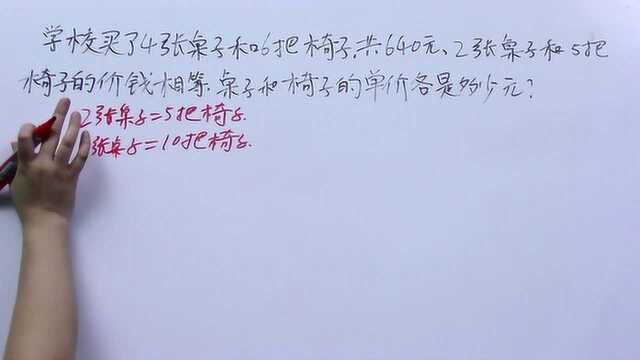 学校买了4张桌子和6把椅子,共640元、2张桌子和5把
椅子的价钱相等.桌子和椅子的单价各是多少元?
2张桌子=5把椅子.
张桌子=10把椅子.